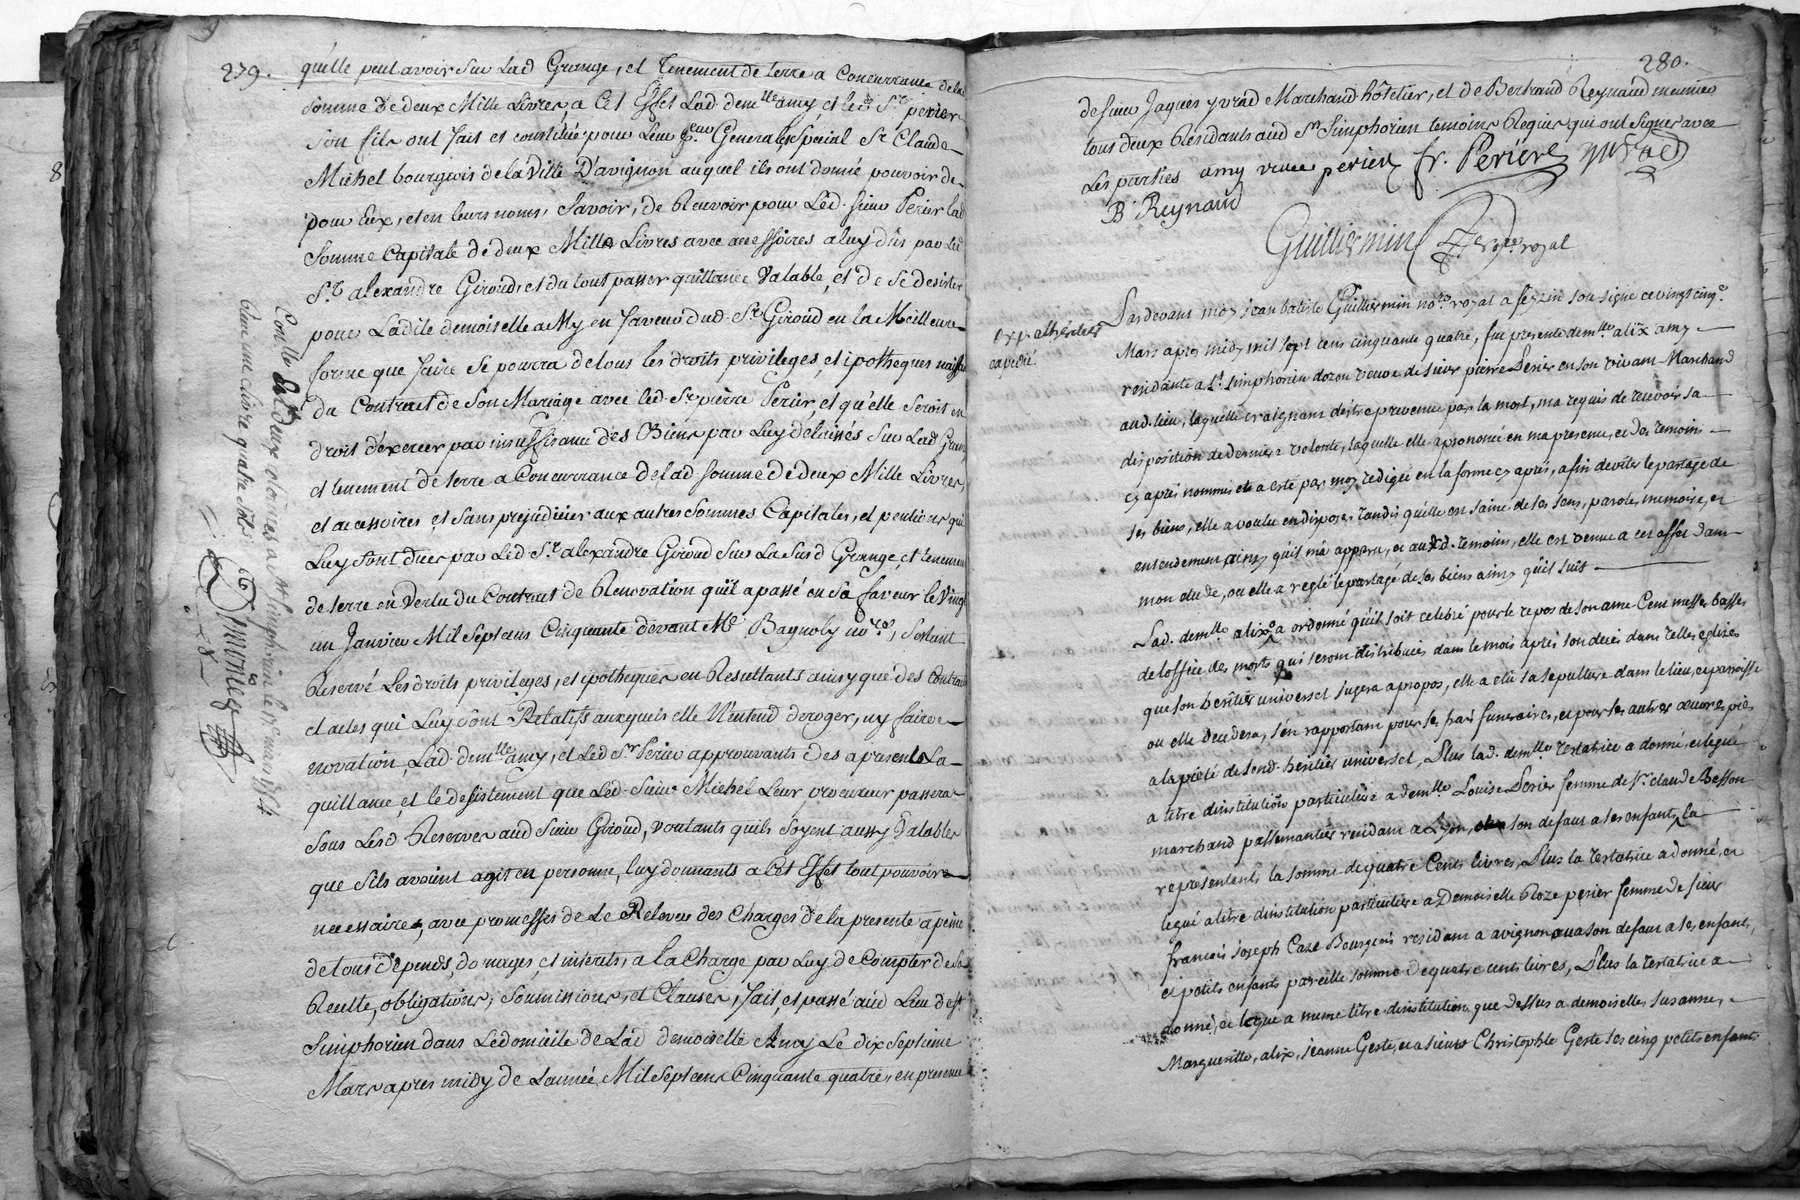 279.
qu'elle peut avoir sur lad Grange, et tenement de terre a Concurrance de la
somme de deux Mille Livres, a Cet Effet Lad. demlle amy et led. Sr. perier
son fils ont fait et constitué pour Leur Général et Special Sr Claude
Michel bourgeois de la Ville D'avignon auquel ils ont donné pouvoir de
pour Eux, et en leurs noms, Savoir, de Recevoir pour Led. sieur Perier lad
Somme Capitale de deux Mille Livres avec accessoires a luy dûs par Led
Sr. alexandre Giroud, et du tout passer quittance Valable, et de se desister
pour Ladite demoiselle aMy en faveur dud. Sr Giroud en la Meilleure
forme que faire se pourra de tous les droits privileges, et ipotheques
du Contract de Son Mariage avec led. Sr. pierre Perier, et qu'elle seroit en
droit d'exercer par insuffisance des Biens par Luy delaissés Sur Lad Grange
et tenement de terre a Concurrance de lad somme de deux Mille Livres,
et accessoires et sans prejudicier aux autres Sommes Capitales, et pentions qui
Luy sont dues par Led Sr. alexandre Giroud Sur La Susd Grange et tenement
de terre en Vertu du Contract de Renovation qu'il a passé en sa faveur le Vingt
un Janvier Mil Septcens Cinquante devant Me Bagnoly nore,
Reservé Les droits privileges, et ipotheques en Resultants ainsy que des Contrats
et actes qui Luy sont Relatifs auxquels elle N'entend deroger, ny faire
novation, Lad. demlle amy, et Led Sr Perier approuvants des a present La
quittance, et le desistement que Led. Sieur Michel Leur procureur passera
Sous Lesd Reserves aud Sieur Giroud, voulants quils soyent aussy Valables
que Sils avoient agit en personne, luy donnants a Cet Effet tout pouvoir
necessaire, avec promesses de Le Relever des Charges de la presente a peine
de tous depends, domages, et interets, a la Charge par Luy de Compter de sa
Recette, obligations, soumissions, et Clauses, fait, et passé aud Lieu de St.
Simphorien dans Le domicile de Lad demoiselle Amy Le dix septieme
Mars apres midy de L'année Mil Septcens Cinquante quatre, en presence
Conllé a St simphorien le mars 1754
livre quatre sols
280.
de sieur Jaques yvrad Marchand hôtelier, et de Bertrand Reynaud meunier
tous deux Residants aud St Simphorien temoins Requis qui ont Signés avec
Les parties amy veuve perier fr. Perier yvrad
B Reynaud
Guillermin Nore royal
expedié
Pardevant moy jean batiste Guillermin nore royal a feyzin soussigné ce vingt cinqe
Mars apres midy mil sept cens cinquante quatre, fut presente demlle alix amy
residante a St. simphorien dozon veuve de sieur pierre Perier en son vivant Marchand
aud. lieu, laquelle craignant d'estre prevenue par la mort, ma requis de recevoir sa
disposition de derniere volonté, laquelle elle a prononcé en ma presence, et des temoins
cy apres nommés et a esté par moy redigée en la forme cy aprés, afin d'eviter le partage de
ses biens, elle a voulu en disposer tandis qu'elle est saine de ses sens, parole, memoire, et
entendement ainsy qu'il m'a apparu, et auxd. temoins, elle est venue a cet effet dans
mon etude, ou elle a reglé le partage de ses biens ainsy qu'il suit
Lad. demlle alix a ordonné qu'il soit celebré pour le repos de son ame Cent messes basses
de l'office des morts qui seront distribuées dans le mois aprés son decés dans telles eglises
que son heritier universel jugera a propos, elle a elu sa sepulture dans le lieu, et parroisse
ou elle decedera, s'en rapportant pour ses frais funeraires, et pour ses autres oeuvres pies
a la pieté de sond. heritier universel, Plus lad. demlle testatrice a donné, et legué
a titre d'institution particuliere a demlle Louise Perier femme de Sr. claude Besson
marchand passementier residant a Lyon, son defaut a ses enfants, la
representants la somme de quatre Cents livres, Plus la testatrice a donné, et
legué a titre d'institution particuliere a Demoiselle Roze perier femme de sieur
francois joseph Caze Bourgeois residant a avignon ou a son defaut a ses enfants,
et petits enfants pareille somme de quatre cents livres, Plus la testatrice a
donné, et legué a meme titre d'institution que dessus a demoiselles susanne,
Margueritte, alix, jeanne Geste, et a sieur Christophle Geste ses cinq petits enfants